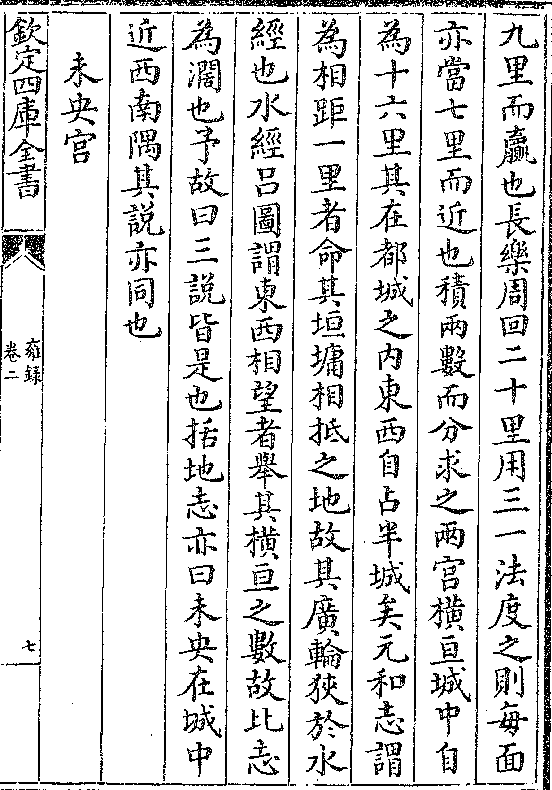 九里而贏也長樂周回二十里用三一法度之則每面
亦當七里而近也積兩數而分求之兩宮橫亘城中自
為十六里其在都城之內東西自占半城矣元和志謂
為相距一里者命其垣墉相抵之地故其廣輪狹於水
經也水經呂圖謂東西相望者舉其橫亘之數故比志
為濶也予故曰三說皆是也括地志亦曰未央在城中
近西南隅其說亦同也
未央宮
欽定四庫全書
雍録
卷二
七